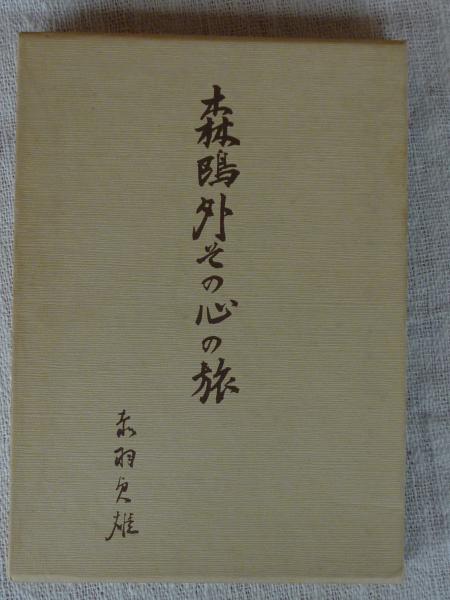 森鴎外その心の旅
赤羽貞雄